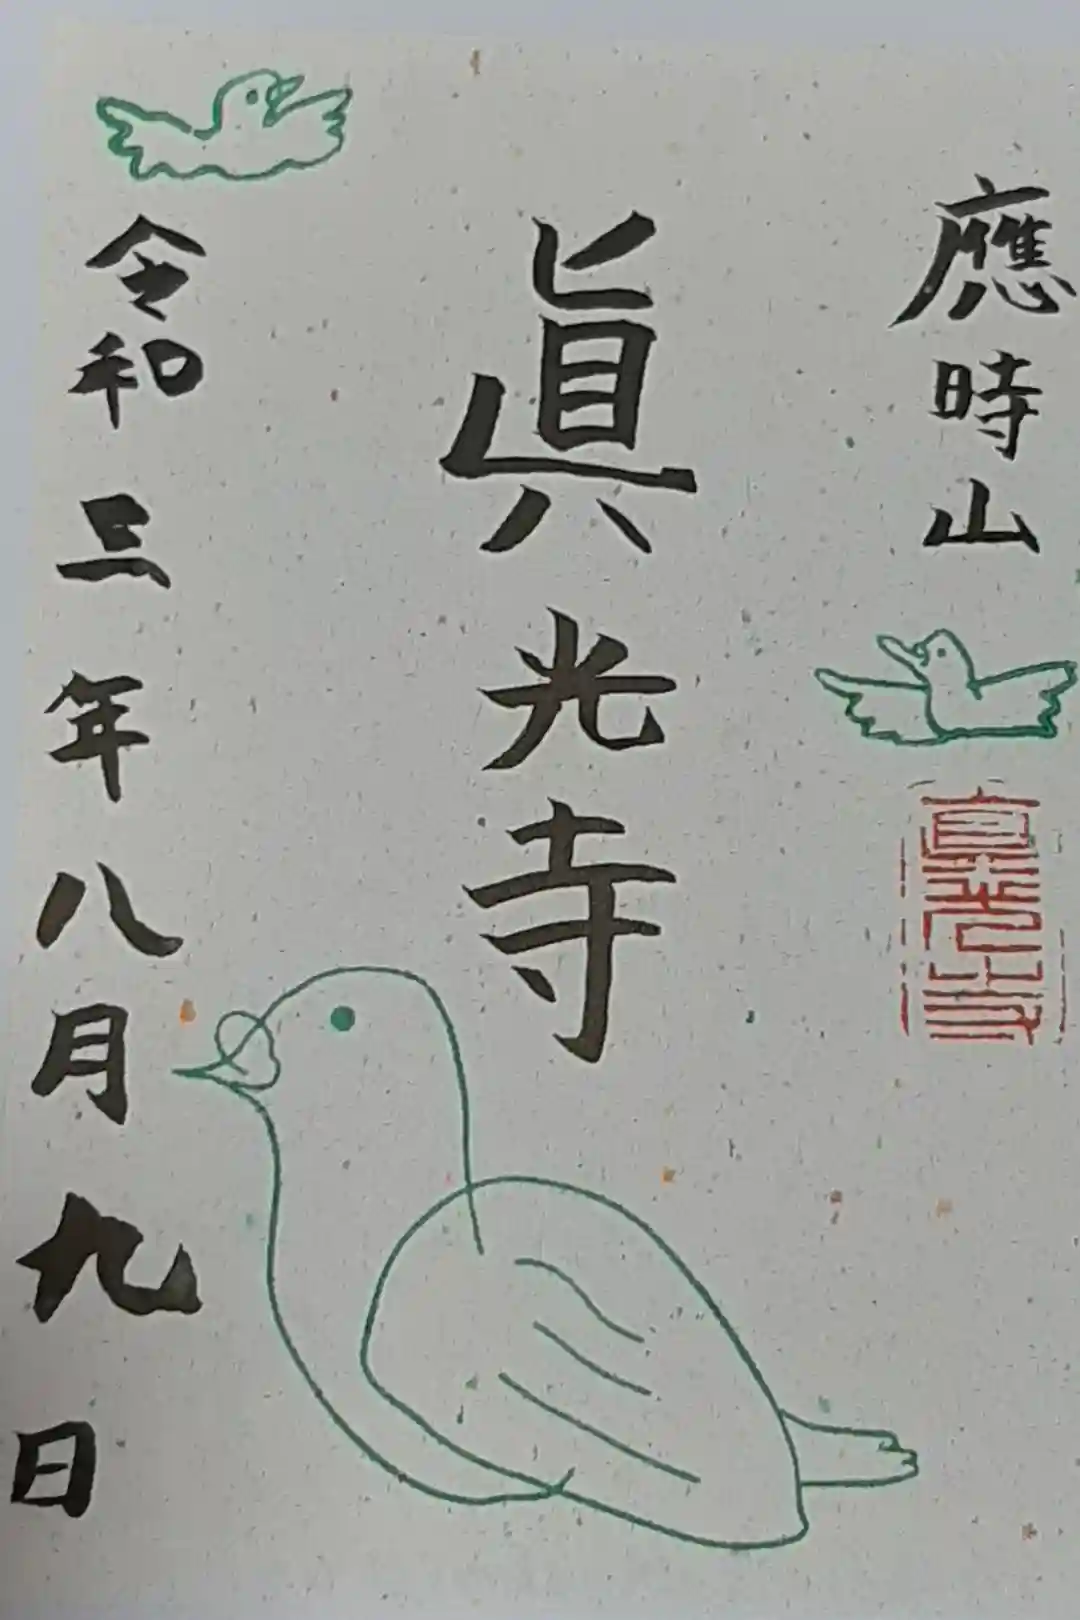 應時山
眞光寺
眞光寺
令和三年八月九日